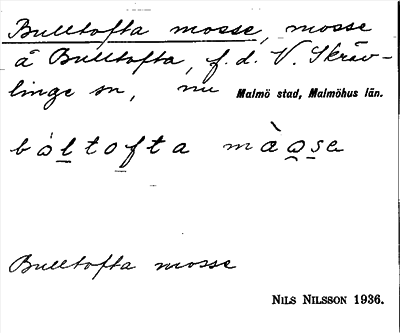 Bulltofta mosse, mosse
å Bulltofta, f. d. V. Skräv-
linge sn, nu Malmö stad, Malmöhus län.
bòltofta màosa
Bulltofta mosse
NILS NILSSON 1936.